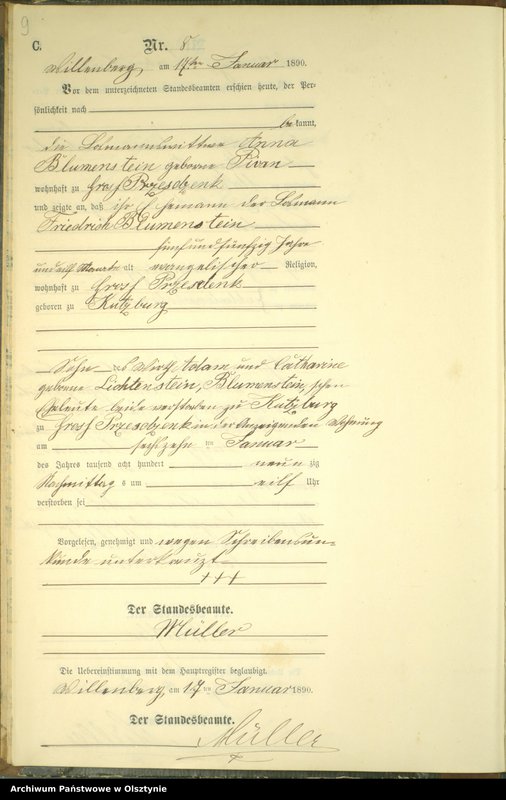 9
C.
Nr. 8
Willenberg, am 17ten Januar 1890.
Vor dem unterzeichneten Standesbeamten erschien heute, der Per-
sönlichkeit nach
bekannt,
die Losmannswittwe Anna
Blumenstein geborne Pivan
wohnhaft zu Gross Przesdzenk
und zeigte an, daß ihr Ehemann der Losmann
Friedrich Blumenstein
fünfundfünfzig Jahre
und elf Monate alt evangelischer Religion,
wohnhaft zu Gross Przesdzenk
geboren zu Kutzburg
Sohn Adam und Catharine
geborne Lichtenstein, Blumenstein'schen
Eheleute beide verstorben zu Kutzburg
zu Gross Przesdzienk in der Anzeigenden Wohnung
am sechszehn ten Januar
des Jahres tausend acht hundert neun zig
Nachmittag s um eilf Uhr
verstorben sei
Vorgelesen, genehmigt und wegen Schreibensun-
kunde unterkreuzt
+++
Der Standesbeamte.
Müller
Die Uebereinstimmung mit dem Hauptregister beglaubigt.
Willenberg, am 17 ten Januar 1890.
Der Standesbeamte.
Müller
Archiwum Państwowe w Olsztynie